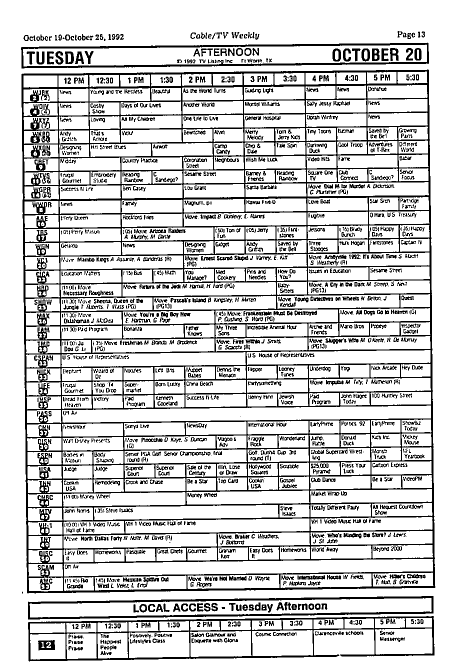 October 19-October 25, 1992 Cable/TV Weekly Page 13
TUESDAY AFTERNOON OCTOBER 20
© 1992 TV Listing Inc. Ft Worth, TX
12 PM 12:30 1 PM 1:30 2 PM 2:30 3 PM 3:30 4 PM 4:30 5 PM 5:30
WJBK News Young and the Restless Beautiful As the World Turns Guiding Light News News Donahue
WDIV News Cosby Show Days of Our Lives Another World Montel Williams Sally Jessy Raphael News News
WXYZ News Loving All My Children One Life to Live General Hospital Oprah Winfrey News News
Andy Griffith That's Amore Wolf Bewitched Alvin Merry Melody Tom & Jerry Kids Tiny Toons Batman Saved by the Bell Growing Pains
Designing Women Hill Street Blues Airwolf Camp Candy Chip & Dale Tale Spin Darkwing Duck Goof Troop Adventures of T-Rex Different World
CBET Midday Country Practice Coronation Street Neighbours Wish Me Luck Video Hits Fame Babar
WTVS Frugal Gourmet Embroidery Studio Reading Rainbow C. Sandiego? Sesame Street Barney & Friends Reading Rainbow Square One TV Club Connect C. Sandiego? Senior Focus
WGPR Success N Life Ben Casey Lou Grant Santa Barbara Movie Dial M for Murder A Dickinson, C Plummer (PG13)
News Family Magnum, P.I. Hawaii Five-O Love Boat Star Search Partridge Family
A&E Ellery Queen Rockford Files Movie: Impact B Donlevy, E Raines Fugitive O Hara, U.S. Treasury
TBS (:05) Perry Mason (:05) Movie Arizona Raiders A Murphy, M Dante (:50) Tom of Fun (:05) Jerry (:35) Flintstones Jetsons (:35) Brady Bunch (:05) Happy Days (:35) Happy Days
WGN Geraldo News Designing Women Gidget Andy Griffith Saved by the Bell Three Stooges Hulk Hogan Flintstones Captain N
Movie Mambo Kings A Assante, A Banderas (R) Movie Ernest Scared Stupid J Varney, E Kitt (PG) Movie Amityville 1992: It's About Time S Macht, S Weatherly (R)
CICA Education Matters (:15) Bus (:45) Math You Manage? Wed Cookery Pins and Needles How Do You? Issues in Education Sesame Street
HBO (11:00) Movie Necessary Roughness Movie Return of the Jedi M Hamill, H Ford (PG) Baby-Sitters Movie A Cry in the Dark M Streep, S Neill (PG13)
SHOW (11:30) Movie Sheena, Queen of the Jungle T Roberts, T Wass (PG) Movie Pascali's Island B Kingsley, H Mirren (PG13) Young Kendall Movie Young Detectives on Wheels
MAX (11:30) Movie Dutchman J McDes Movie You're a Big Boy Now E Hartman, G Page (:45) Movie Frankenstein Must Be Destroyed P Cushing, S Ward (PG) Movie All Dogs Go to Heaven (G)
FAM (11:30) Paid Program Bonanza Father Knows My Three Sons Incredible Animal Hour Archie and Friends Mario Bros Popeye Inspector Gadget
TMC Movie Freshman M Brando, M Broderick (PG) Movie Fires Within J Smits, G Scacchi (R) Movie Slugger's Wife M O'Keefe, R De Mornay (PG13)
CSPAN U.S. House of Representatives U.S. House of Representatives
NICK Elephant Wizard of Oz Noozles Little Bits Muppet Babies Dennis the Menace Flipper Looney Tunes Underdog Yogi Nick Arcade Hey Dude
LIFE Frugal Gourmet Shop Til You Drop Supermarket Born Lucky China Beach thirtysomething Movie Impulse M Tilly, T Matheson (R)
INSP Bread From Heaven Victory Paid Program Kenneth Copeland Success N Life Benny Hinn Jewish Voice Paid Program John Hagee Today 100 Huntley Street
PASS Off Air
CNN NewsHour Sonya Live NewsDay International Hour EarlyPrime Politics '92 EarlyPrime Showbiz Today
DISN Walt Disney Presents Movie Pinocchio D Kaye, S Duncan (G) Wagon & Adv Fraggle Rock Wonderland Jump Rattle Donald Duck Kids Inc. Mickey Mouse
ESPN Bodies in Motion Body Shaping Senior PGA Golf Senior Championship, final round (R) Golf Dunhill Cup 3rd round (T) Global Supercard Wrestling Monster Truck S.F. Yearbook
USA Judge Judge Superior Court Superior Court Sale of the Century Win, Lose or Draw Hollywood Squares Scrabble $25,000 Pyramid Press Your Luck Cartoon Express
TNN Cookin USA Remodeling Crook and Chase Be a Star Top Card Cookin USA Gospel Jubilee Club Dance Be a Star VideoPM
CNBC (11:00) Money Wheel Money Wheel Market Wrap Up
MTV John Norris (:35) Steve Isaacs Steve Isaacs Totally Different Pauly All Request Countdown
VH-1 (10:00) VH 1 Video Music Hall of Fame VH 1 Video Music Hall of Fame VH 1 Video Music Hall of Fame
TNT Movie North Dallas Forty N Nolte, M Davis (R) Movie Braker C Weathers, J Bottoms Movie Who's Minding the Store? J Lewis, J St. John
DISC Easy Does It Homeworks Pasquale Great Chefs Gourmet Graham Kerr Easy Does It Homeworks World Away Beyond 2000
SCAM Off Air
AMC (11:45) Rio Grande (:45) Movie Mexican Spitfire Out West L Velez, L Errol Movie We're Not Married D Wayne, G Rogers Movie International House W Fields, P Hopkins Joyce Movie Hitler's Children T Holt, B Granville
LOCAL ACCESS - Tuesday Afternoon
12 PM 12:30 1 PM 1:30 2 PM 2:30 3 PM 3:30 4 PM 4:30 5 PM 5:30
12 Praise, Praise, Praise The Happiest People Alive Positively, Positive Lifestyles Class Salon Glamour and Etiquette with Gloria Cosmic Connection Clarenceville schools Senior Messenger